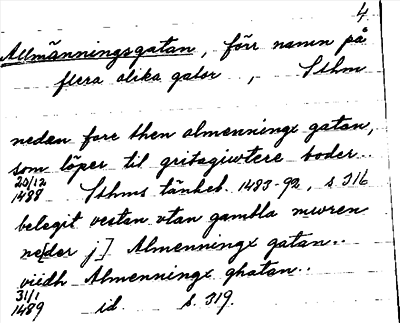 4
Allmänningsgatan, förr namn på
flera olika gator, Sthm
nedan fore then almenningx gatan,
som löper til gritagiwtere boder..
20/12 1488 Sthms tänkeb. 1483-92, s 316
belegit vestan vtan gambla mwren
ne[der j] Almenningx gatan..
viidh Almenningx ghatan..
31/1 1489 id. s. 319.